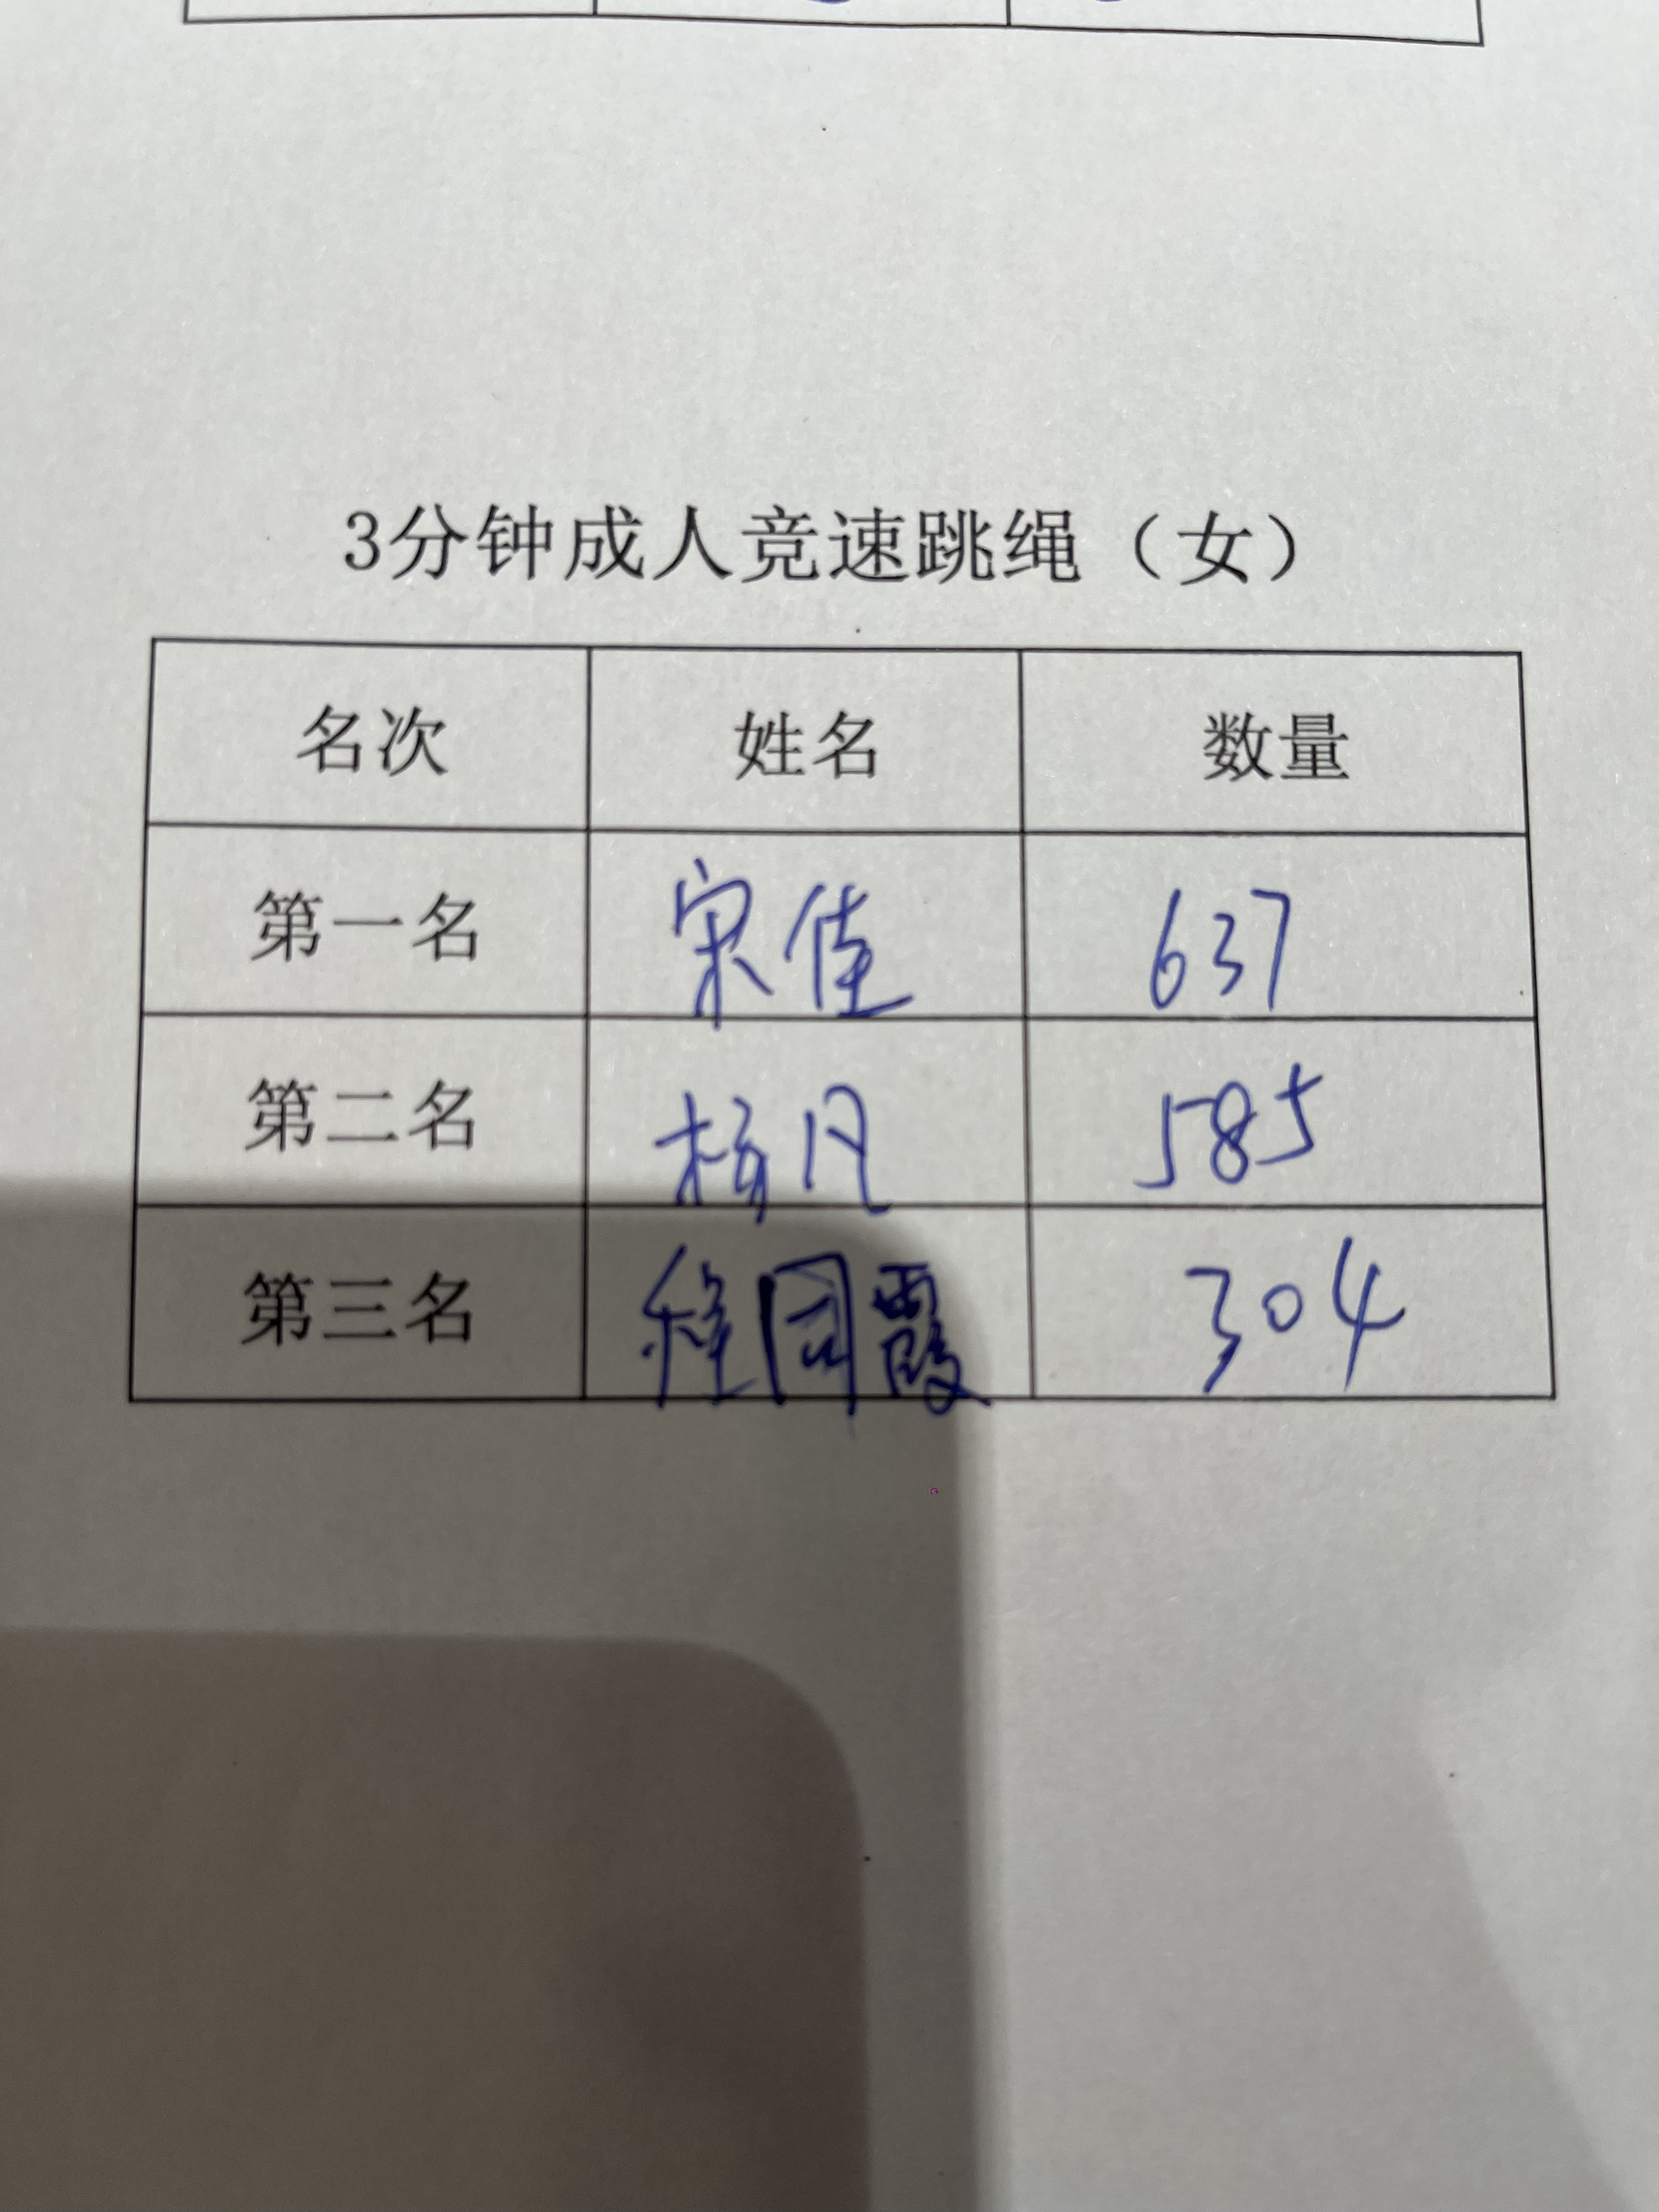 3分钟成人竞速跳绳（女）
名次 姓名 数量
第一名 宋佳 637
第二名 杨凡 585
第三名 程国霞 304